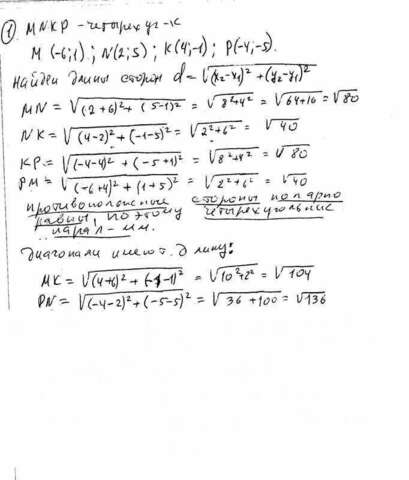 ① MNKP - четырехуг-к
M (-6;1); N(2;5); K(4;-1); P(-4;-5).
Найдем длины сторон d=√(x₂-x₁)²+(y₂-y₁)²
MN = √(2+6)²+(5-1)² = √8²+4² = √64+16 = √80
NK = √(4-2)²+(-1-5)² = √2²+6² = √40
KP = √(-4-4)²+(-5+1)² = √8²+4² = √80
PM = √(-6+4)²+(1+5)² = √2²+6² = √40
противоположные стороны попарно
равны, поэтому четырехугольник
парал-мм.
Диагонали имеют длину:
MK = √(4+6)²+(-1-1)² = √10²+2² = √104
PN = √(-4-2)²+(-5-5)² = √36+100 = √136